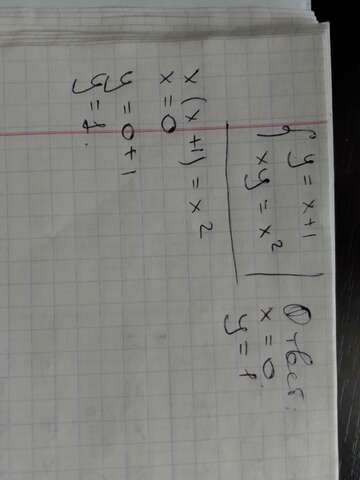 { y = x+1
xy = x²
x(x+1) = x²
x = 0
y = 0+1
y = 1.
Ответ:
x = 0
y = 1